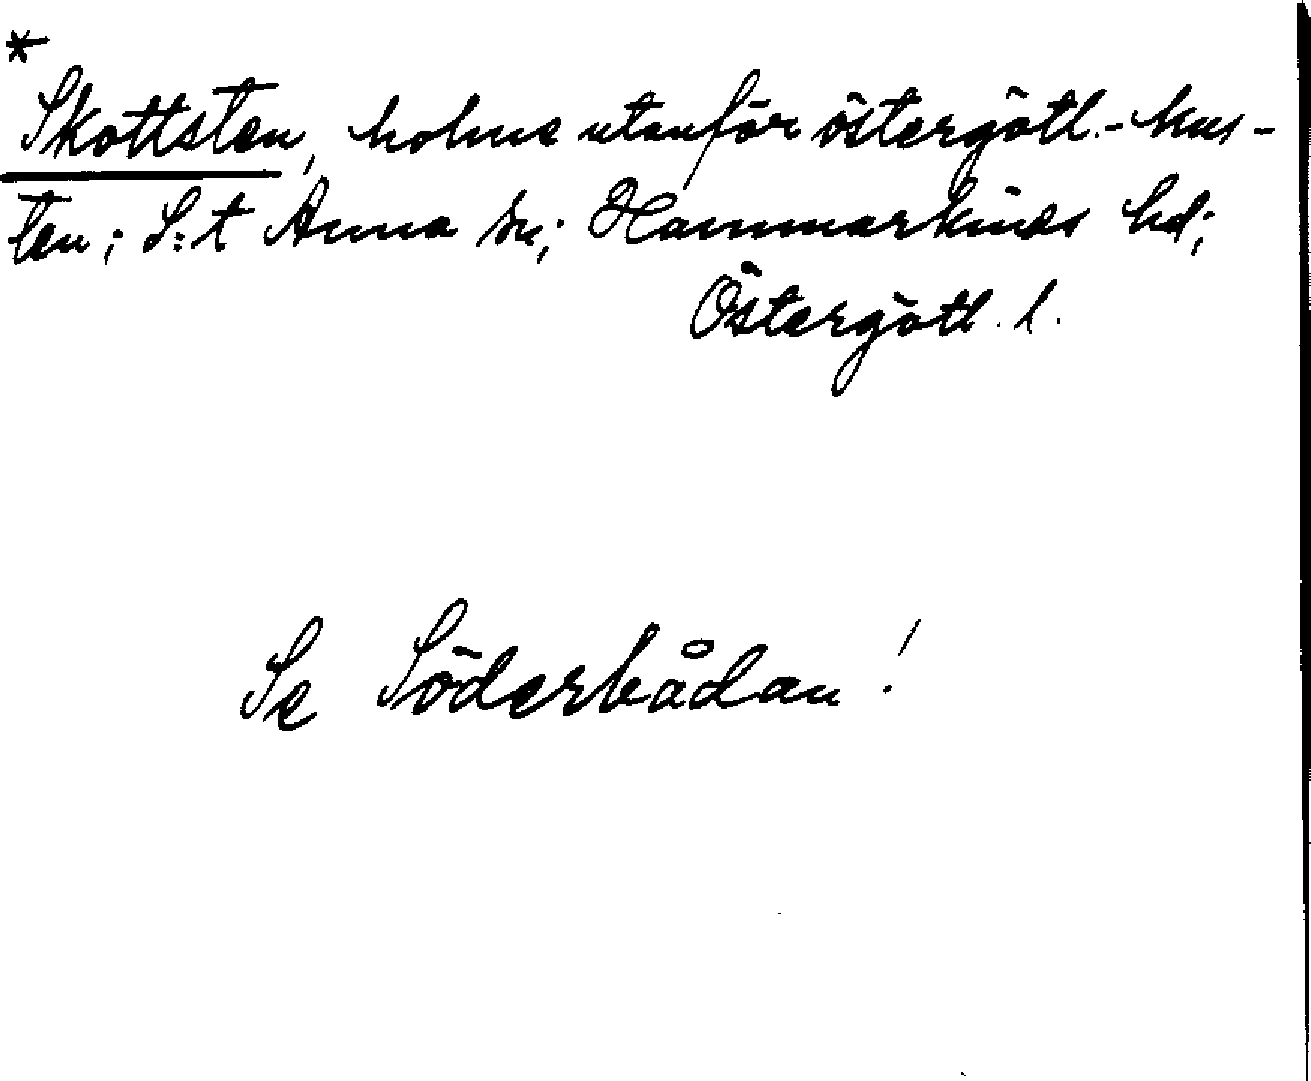 *
Skottsten, holme utanför östergötl.-kus-
ten; S:t Anna sn; Hammarkinds hd;
Östergötl. l.
Se Söderbådan!